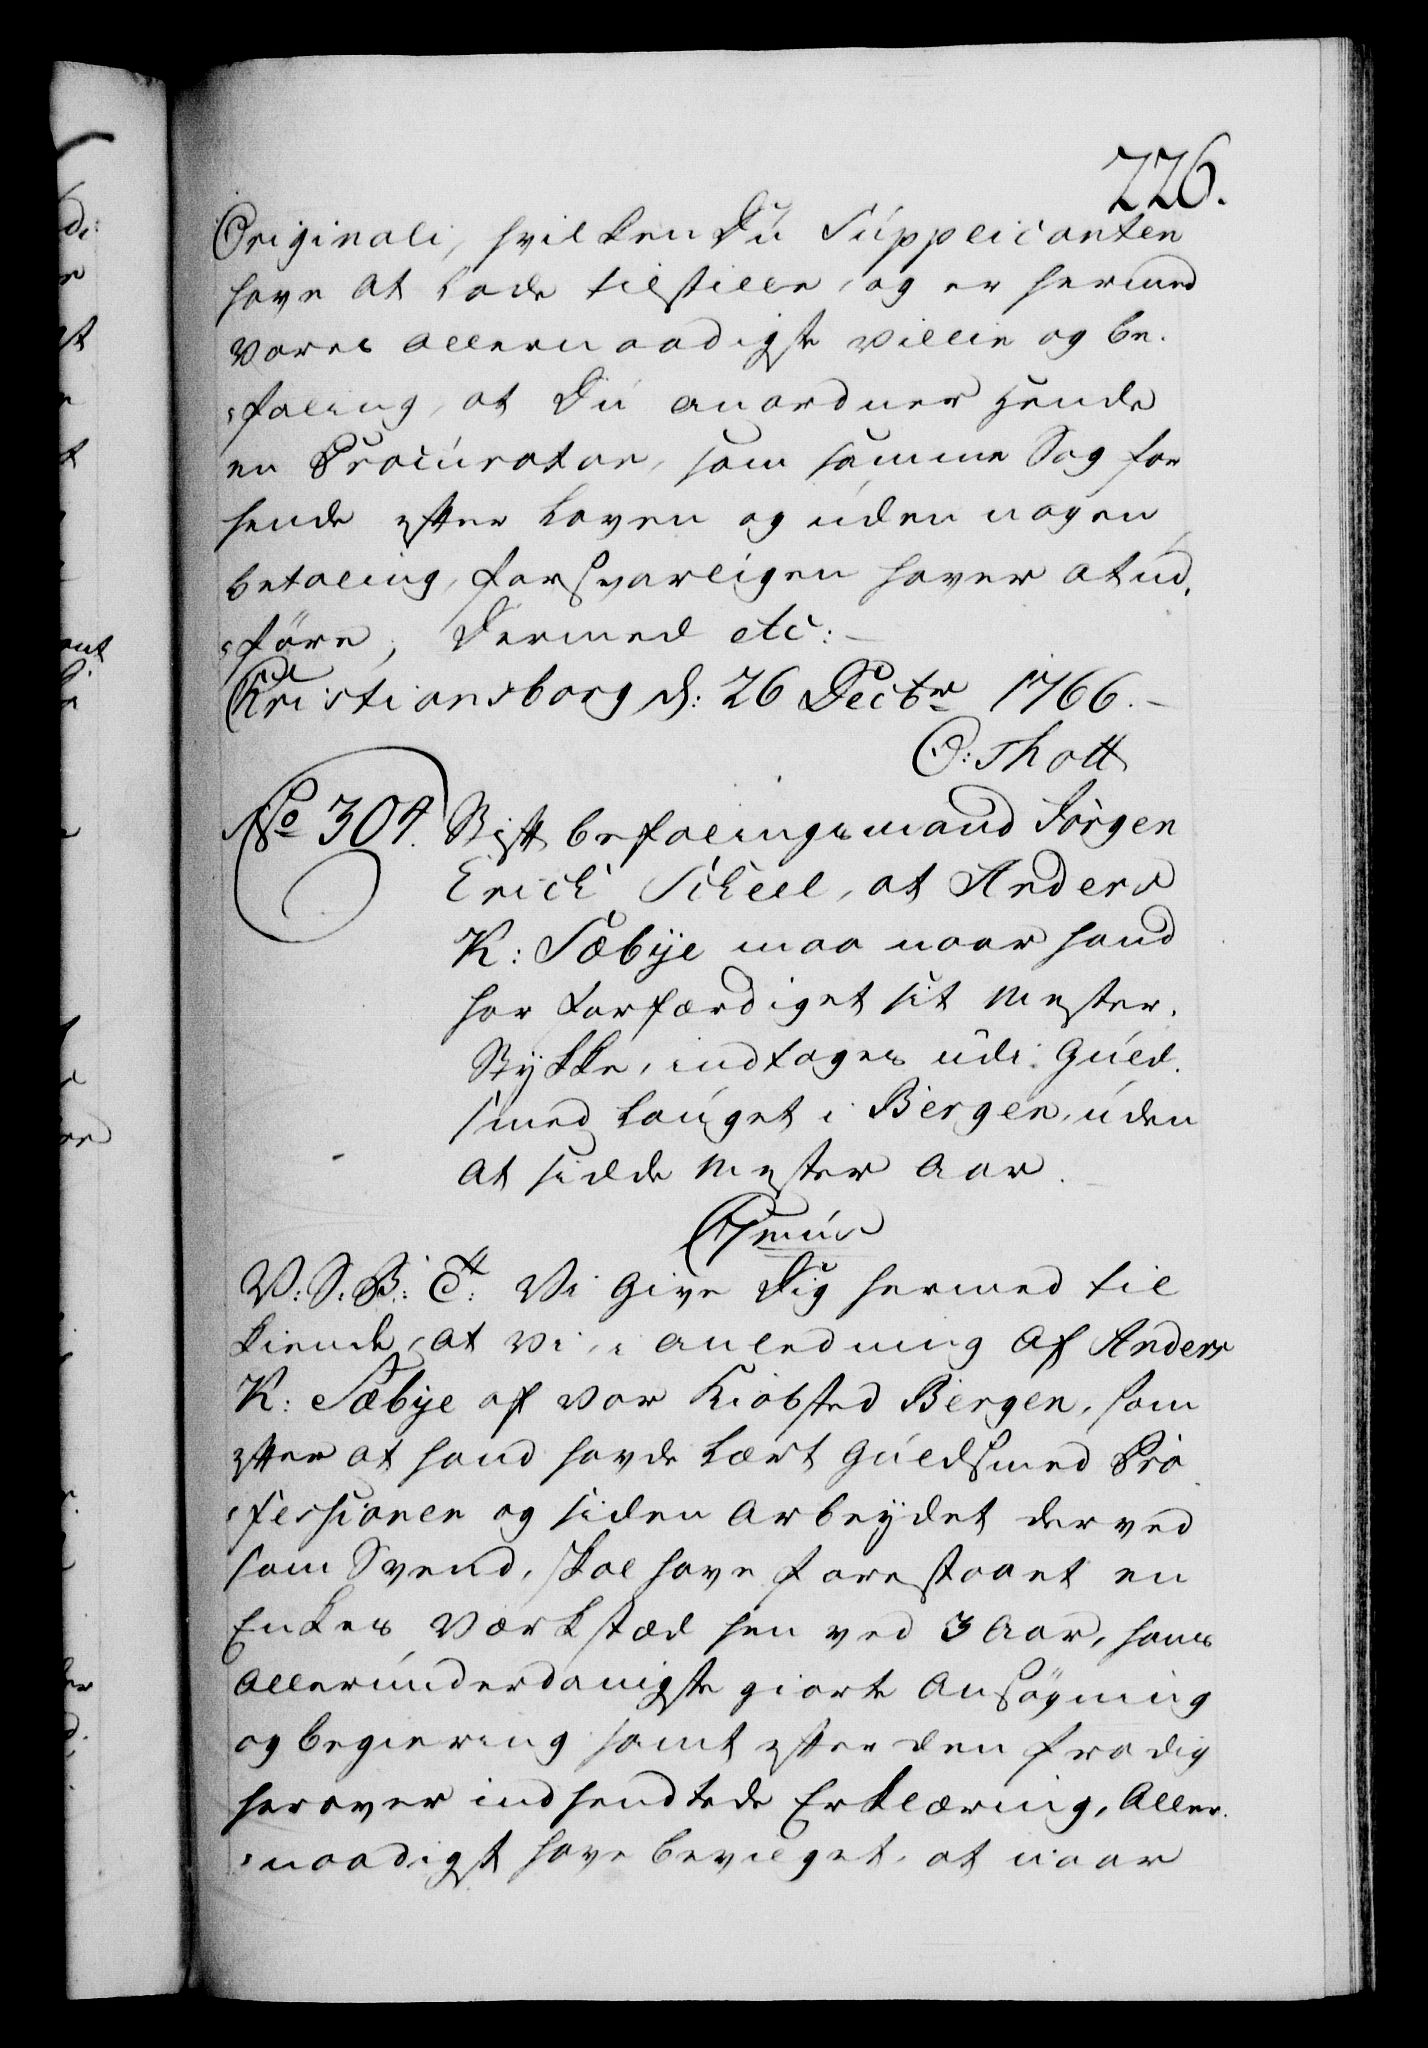 226.
Originali, hvilken Du Supplicanten
have at lade tilstille, og er hermed
Vores allernaadigste villie og be-
-faling, at Du anordner hende
en Procurator, som samme Sag for
hende efter Loven og uden nogen
betaling, forsvarligen haver at ud-
-føre, Dermed etc:
Christiansborg d: 26 Decbr 1766.
O: Thott
No 304. Stiftbefalingsmand Jørgen
Erich Scheel, at Anders
K: Sæbye maa naar hand
har forfærdiget sit Mester-
Stykke, indtages udi Guld-
smed Lauget i Bergen, uden
at sidde Mester Aar.
V: S: B: Ct: Vi Give Dig hermed til
kiende, at Vi, i anledning af Anders
K: Sæbye af vor Kiøbsted Bergen, som
efter at hand havde lært Guldsmed Pro
-fessionen og siden arbeydet derved
som Svend, skal have forestaaet en
Enkes Værksted hen ved 3 Aar, hans
allerunderdanigste giorte Ansøgning
og begiering samt efter den fra dig
herover indsendtede Erklæring, Aller-
-naadigst have bevilget, at naar